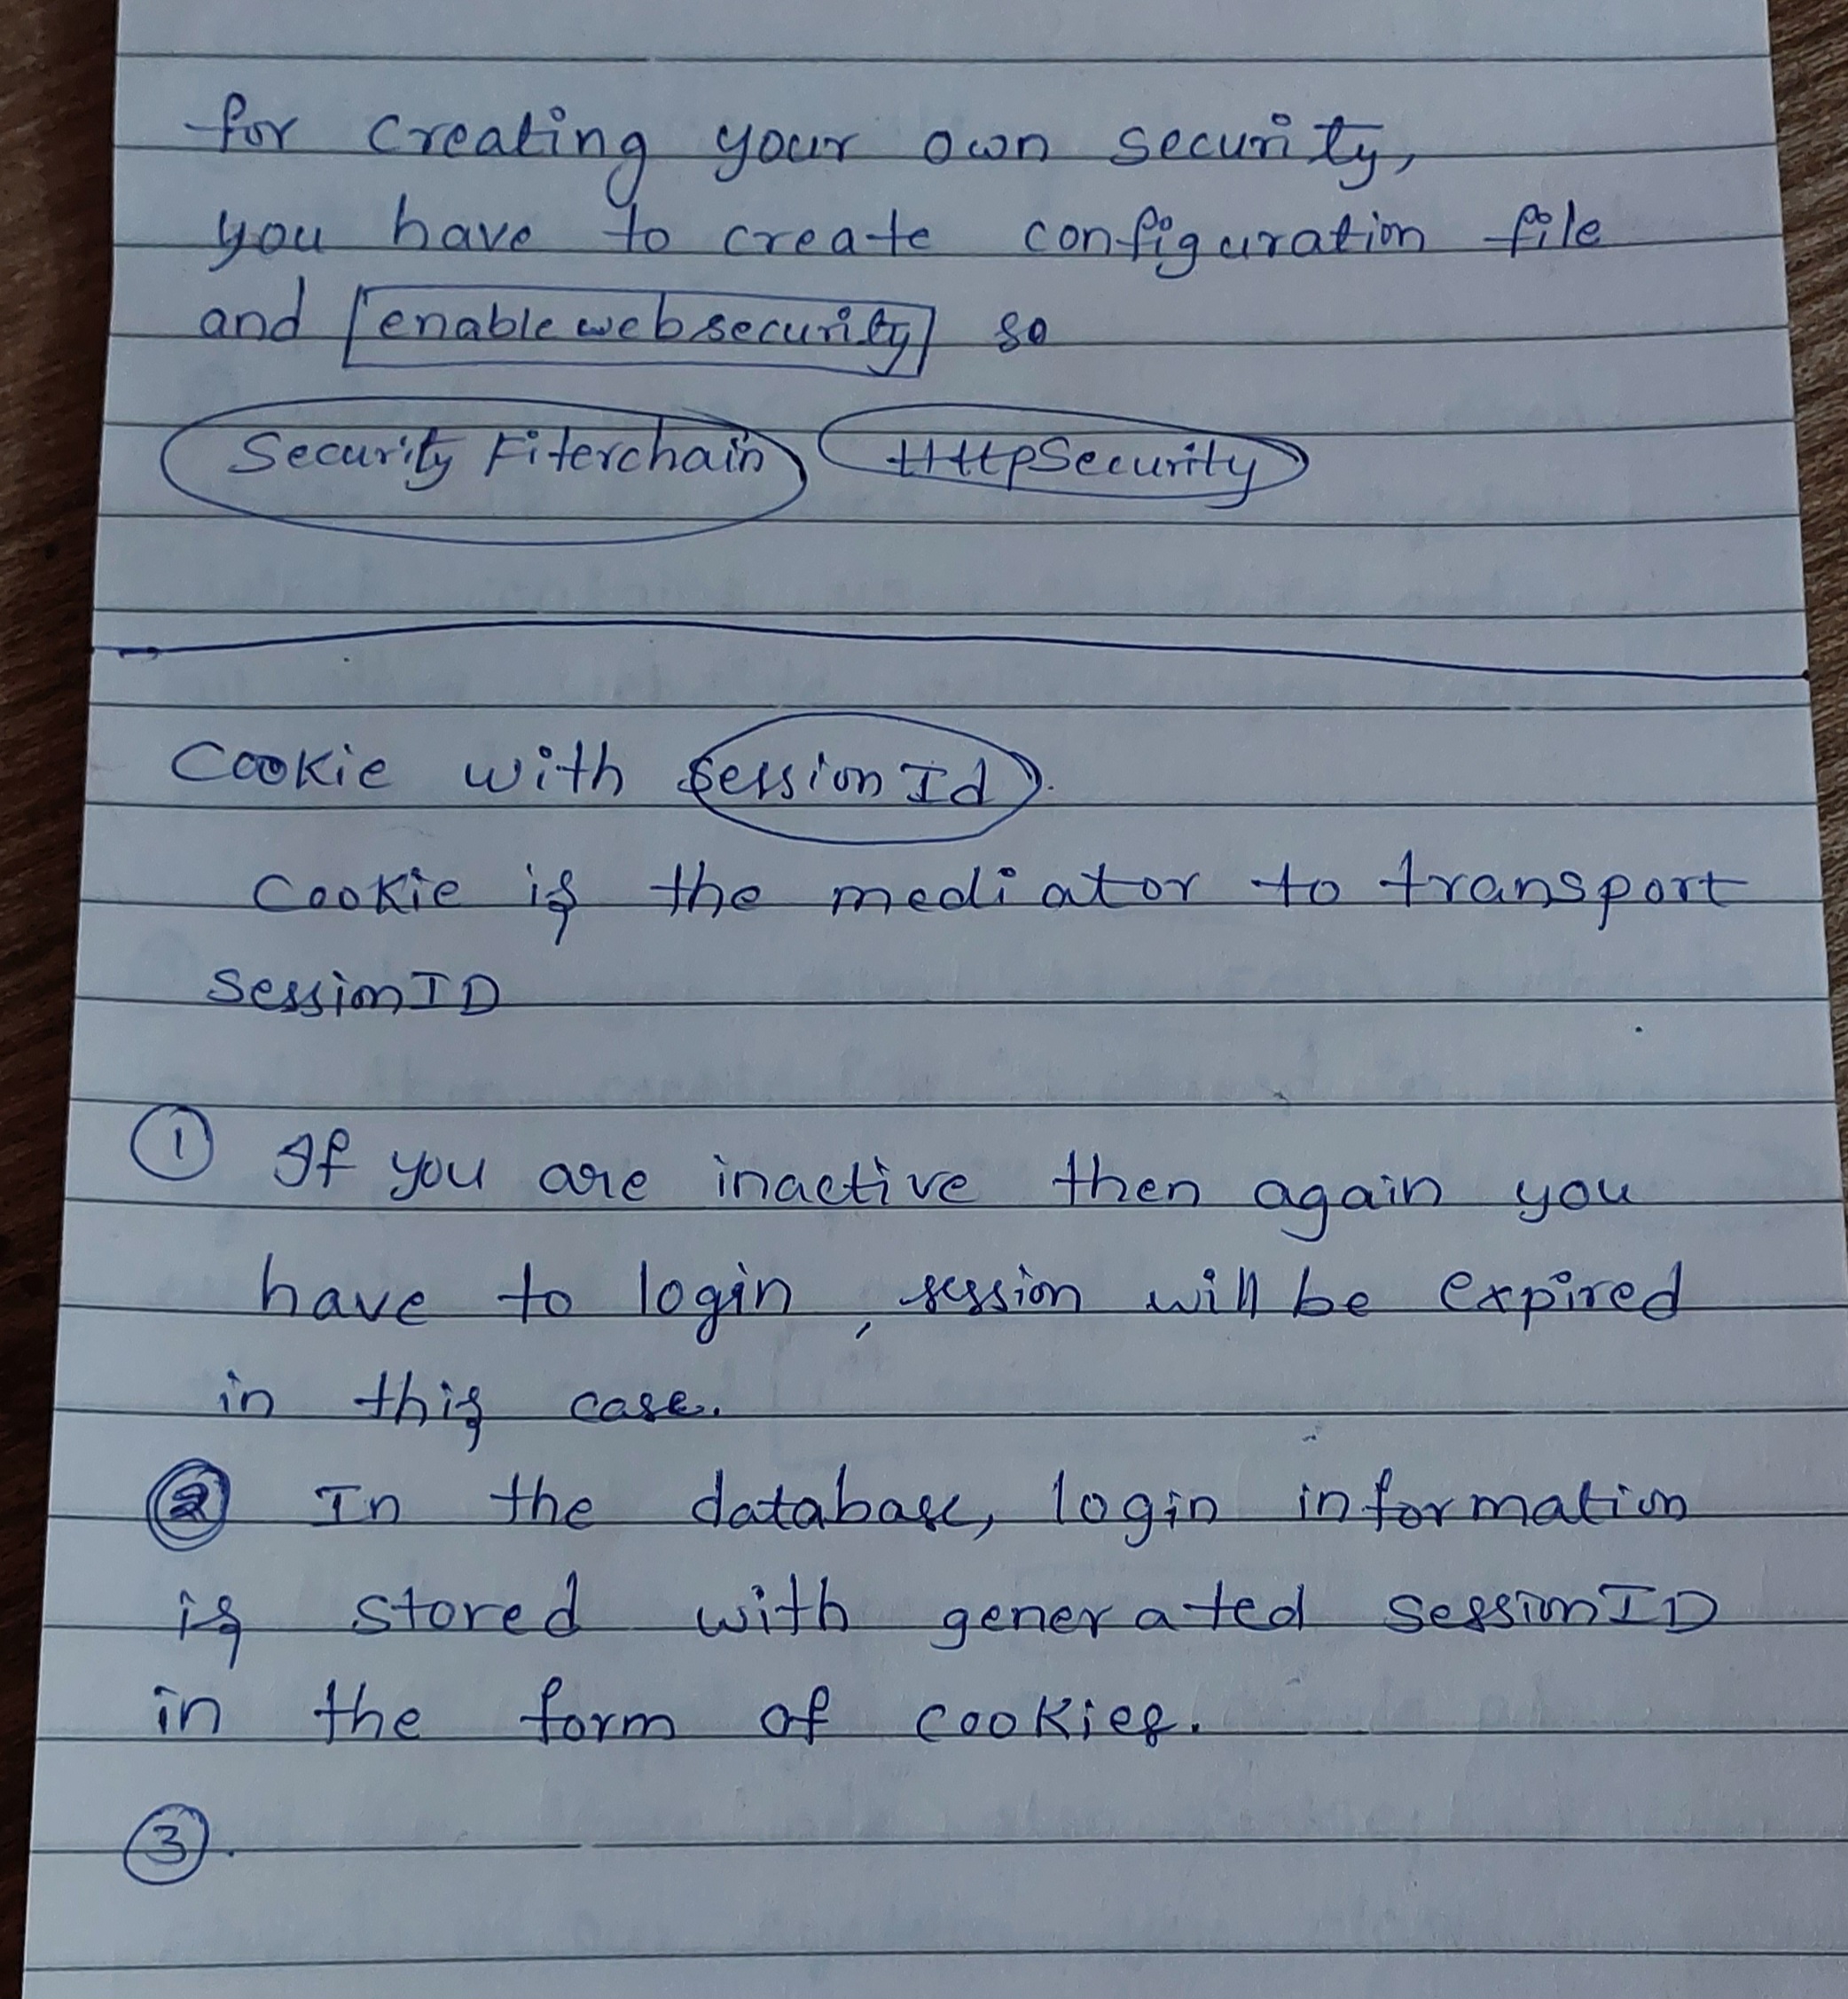 for creating your own security,
you have to create configuration file
and enable websecurity so
Security Fiterchain HttpSecurity
Cookie with Session Id.
Cookie is the mediator to transport
Session ID
1 If you are inactive then again you
have to login, session will be expired
in this case.
2 In the database, login information
is stored with generated Session ID
in the form of cookies.
3.